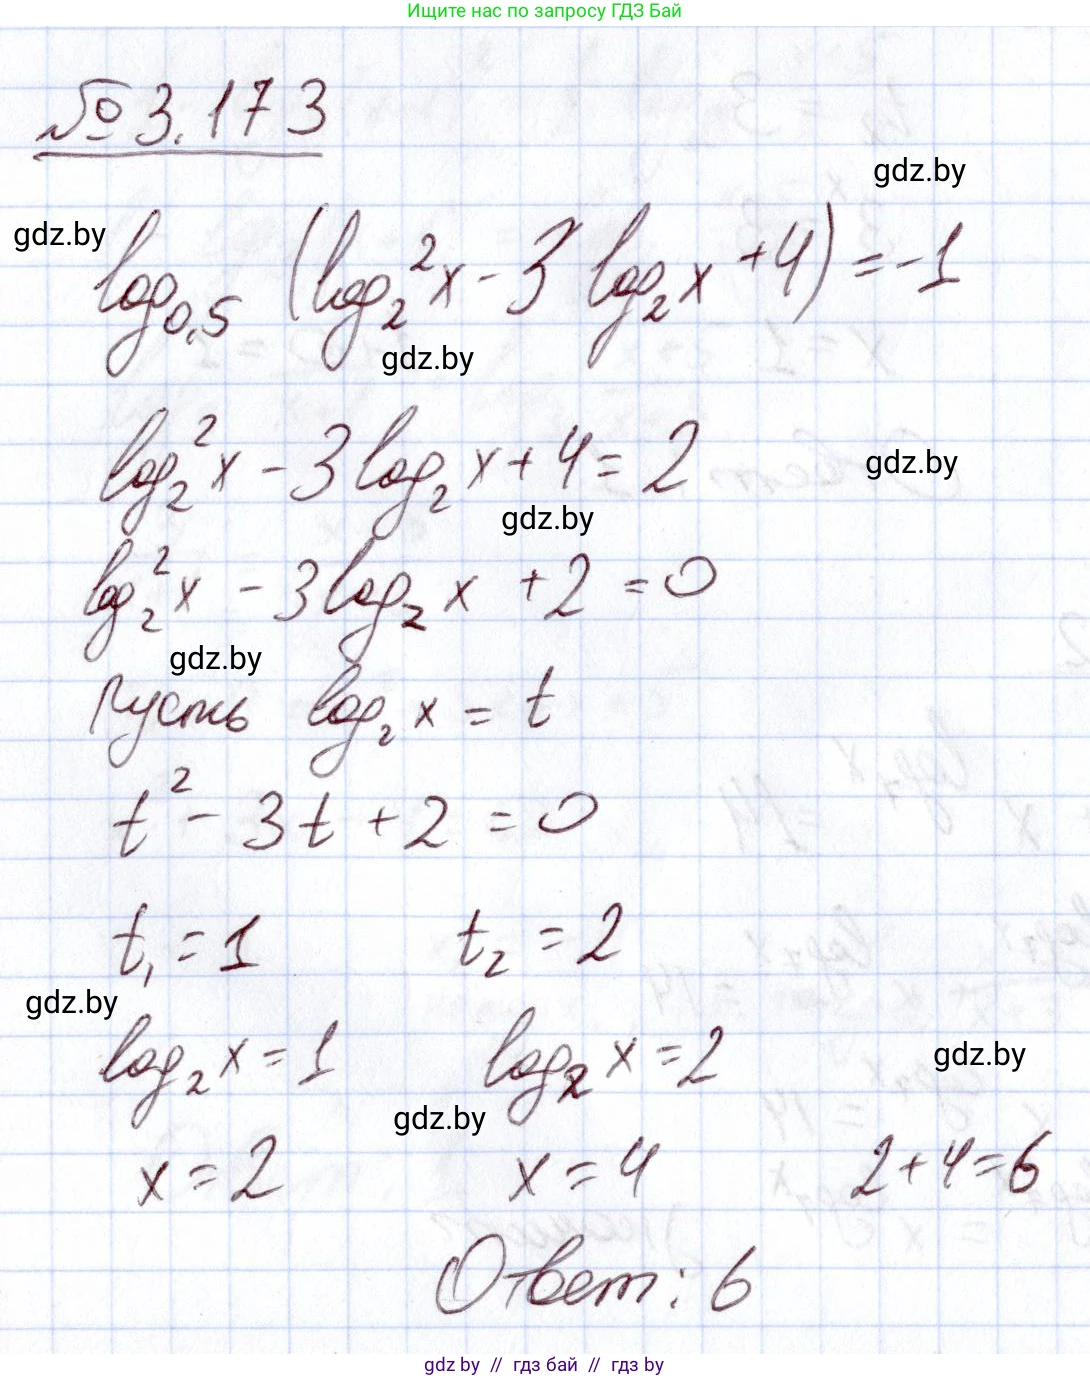 Ищите нас по запросу ГДЗ Бай
№ 3.173
gdz.by
gdz.by
log₀,₅ (log₂²x - 3 log₂x + 4) = -1
gdz.by
log₂²x - 3 log₂x + 4 = 2
gdz.by
gdz.by
log₂²x - 3 log₂x + 2 = 0
gdz.by
Пусть log₂x = t
t² - 3t + 2 = 0
t₁ = 1 t₂ = 2
gdz.by
log₂x = 1 log₂x = 2
gdz.by
gdz.by
x = 2 x = 4 2 + 4 = 6
Ответ: 6
gdz by // гдз бай // гдз by